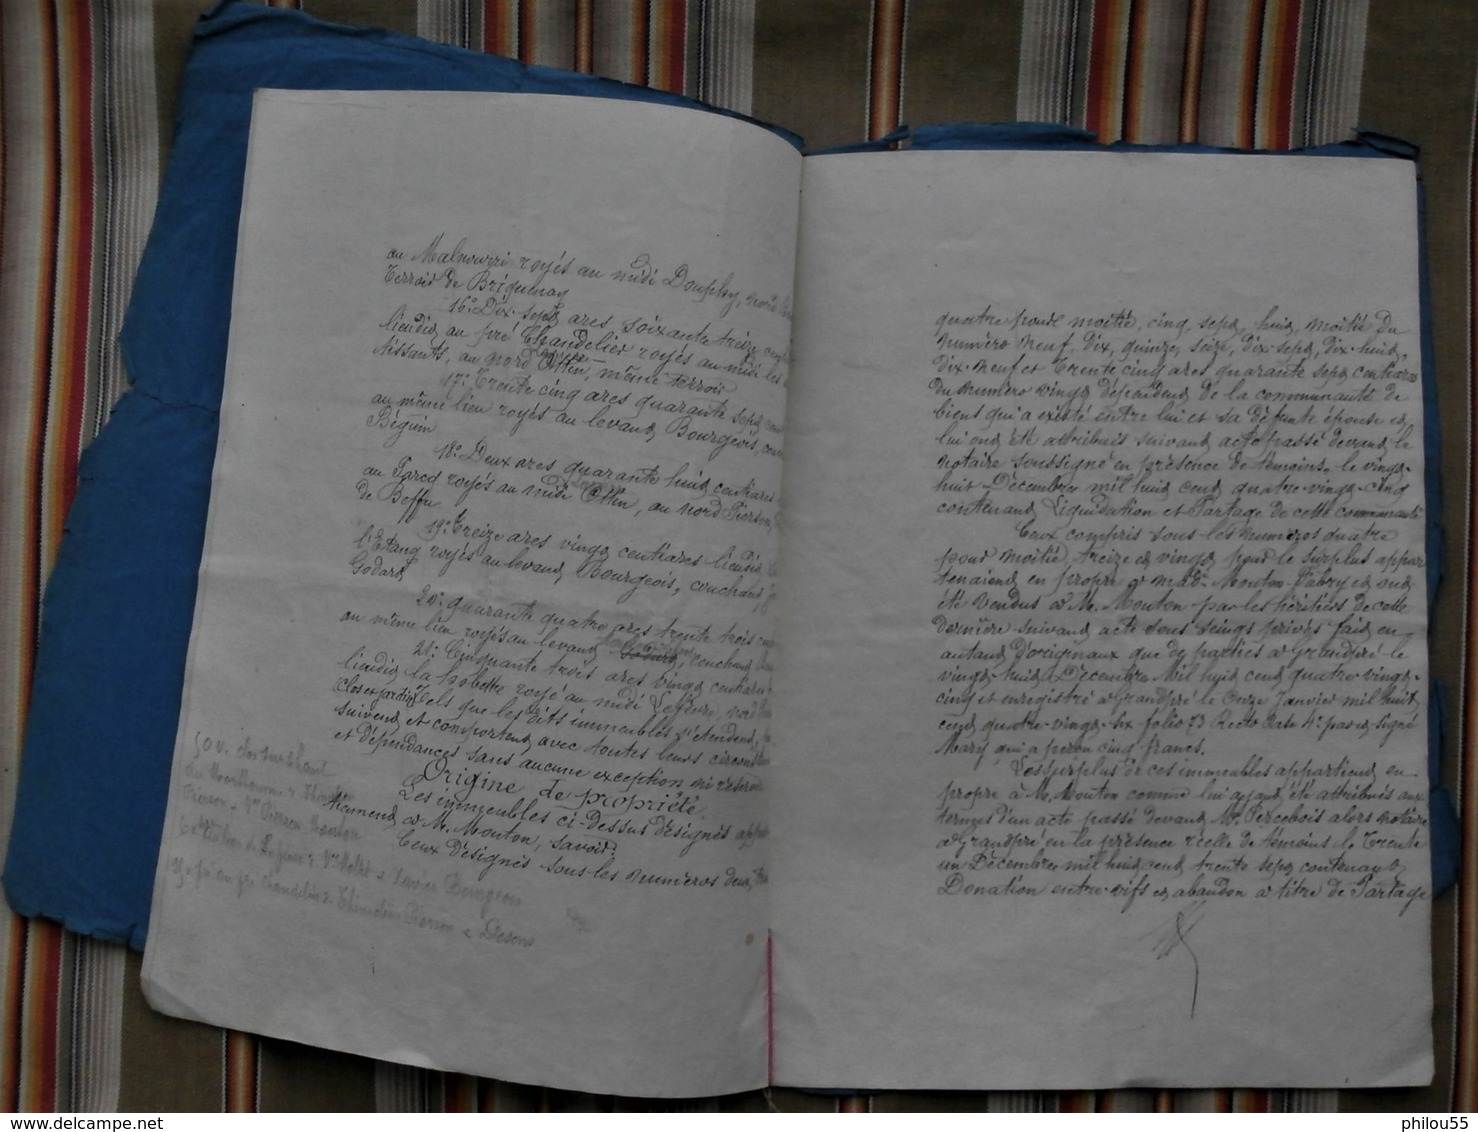 au Malnourri royés au midi Dauphy, nord
Terroir de Briquenay
16° Dix-sept ares, soixante treize
lieudit au pré Chandelier royés au midi les
Nissants, au nord Otten, même terroir
17° Trente cinq ares quarante sept
au même lieu royés au levant Bourgeois, couch
Béguin
18° Deux ares quarante huit centiares
au Parcq royés au midi Otten, au nord Pierson,
de Beffu
19° Treize ares vingt centiares lieudit
l'Etang royés au levant Bourgeois, couchant,
Godart
20° quarante quatre ares trente trois
au même lieu royés au levant couchant
21° Cinquante trois ares vingt centiares
lieudit la hobette royé au midi Lefèvre, nord
Clos et jardin Tels que les dits immeubles s'étendent,
suivent et comportent avec toutes leurs circons
et dépendances sans aucune exception ni réserve
Origine de propriété.
Les immeubles ci-dessus désignés app
tiennent à M. Mouton, savoir:
Ceux désignés sous les numéros deux,
Pierson Mouton
Xavier Bourgeois
pré au pré chandelier Pierson Desons
quatre pour moitié, cinq, sept, huit, moitié du
numéro neuf, dix, quinze, seize, dix-sept, dix-huit,
dix-neuf et trente cinq ares quarante sept centiares
du numéro vingt dépendent de la communauté de
biens qui a existé entre lui et sa défunte épouse et
lui ont été attribués suivant acte passé devant le
notaire soussigné en présence de témoins, le vingt-
huit Décembre mil huit cent quatre-vingt-cinq
contenant Liquidation et Partage de cette communauté
Ceux compris sous les numéros quatre
pour moitié, treize et vingt pour le surplus appar
tenaient en propre à Made Mouton-Fabry et ont
été vendus à M. Mouton par les héritiers de cette
dernière suivant acte sous seings privés fait en
autant d'originaux que de parties à Grandpré le
vingt-huit Décembre mil huit cent quatre-vingt-
cinq et enregistré à Grandpré le onze Janvier mil huit
cent quatre-vingt-six folio 73 Recto Case 4e par signé
Mary qui a perçu cinq francs.
Le surplus de ces immeubles appartient en
propre à M. Mouton comme lui ayant été attribués aux
termes d'un acte passé devant Me Percebois alors notaire
à Grandpré en la présence réelle de témoins le trente
un Décembre mil huit cent trente sept contenant
Donation entre-vifs et abandon à titre de Partage
philou55